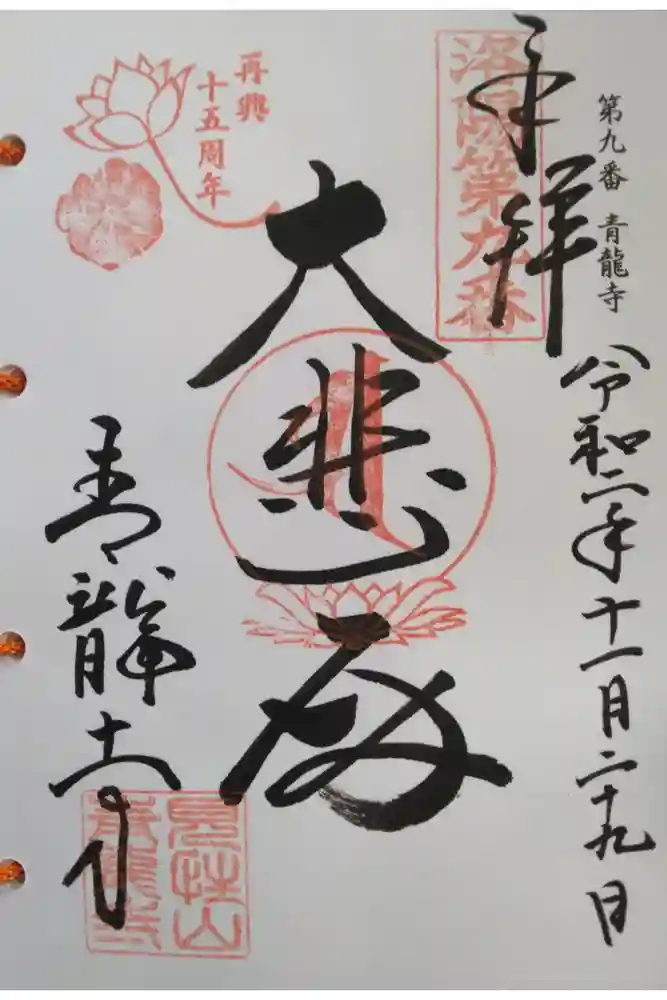 第九番 青龍寺
奉拝
洛陽第九番
令和二年十一月二十九日
再興
十五周年
大悲殿
青龍寺
見性山
青龍寺